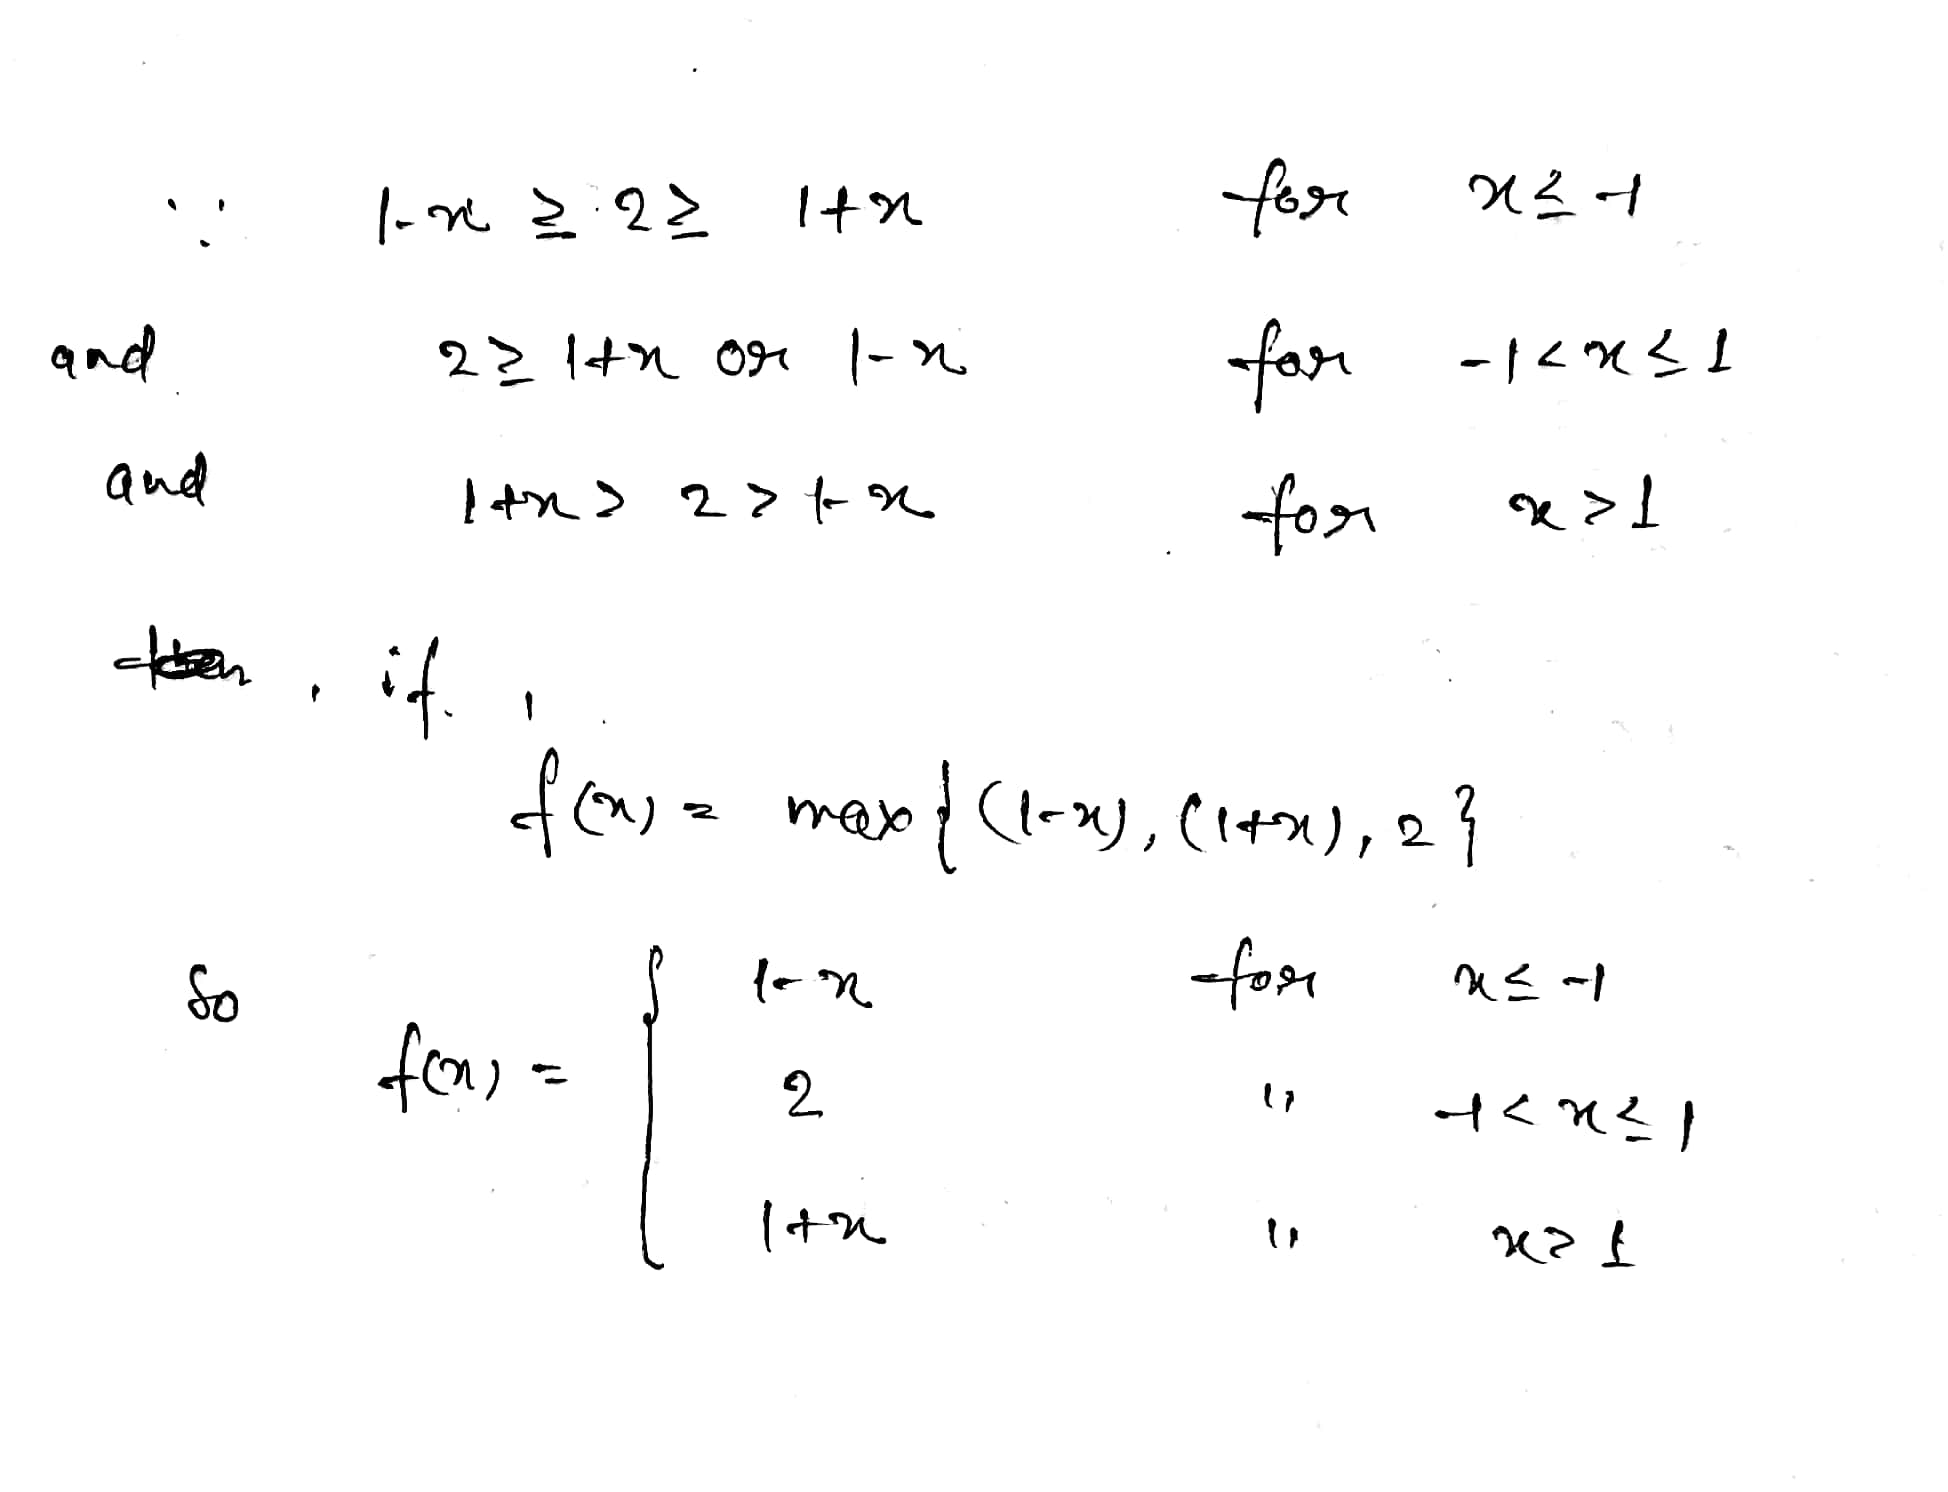 ∵ 1-x ≥ 2 ≥ 1+x for x ≤ -1
and 2 ≥ 1+x or 1-x for -1 < x ≤ 1
and 1+x > 2 > 1-x for x > 1
then, if,
f(x) = max{(1-x), (1+x), 2}
So f(x) = { 1-x for x ≤ -1
2 " -1 < x ≤ 1
1+x " x > 1